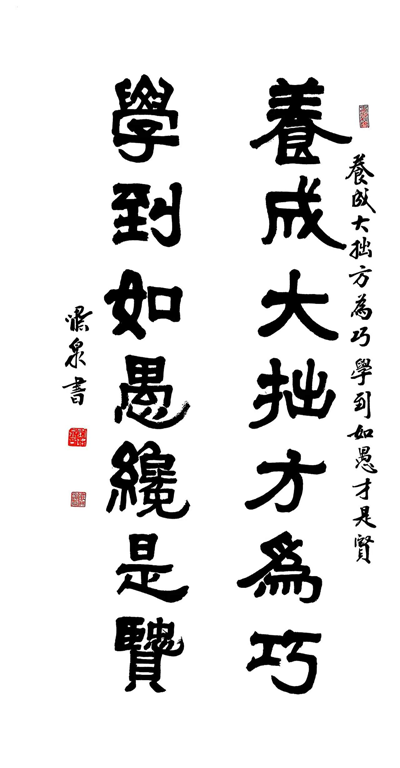 養成大拙方為巧學到如愚才是賢
養成大拙方為巧
學到如愚纔是賢
梁泉書